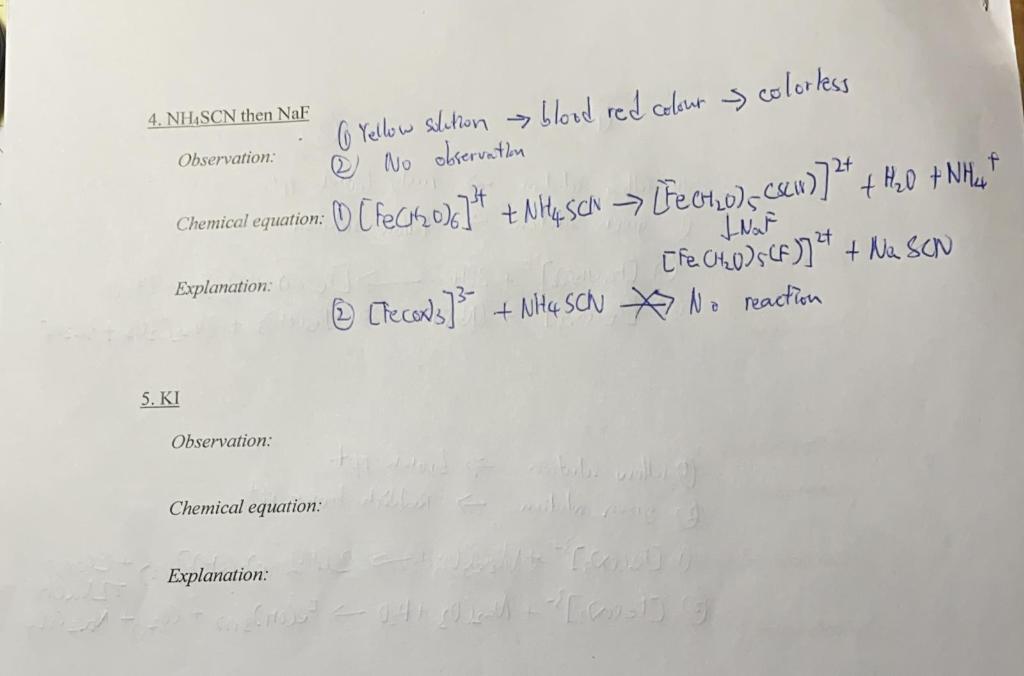 4. NH₄SCN then NaF
① Yellow solution → blood red colour → colorless
Observation:
② No observation
Chemical equation: ① [Fe(H₂O)₆]³⁺ + NH₄SCN → [Fe(H₂O)₅(SCN)]²⁺ + H₂O + NH₄⁺
↓NaF
[Fe(H₂O)₅(F)]²⁺ + NaSCN
Explanation:
② [Fe(ox)₃]³⁻ + NH₄SCN ↛ No reaction
5. KI
Observation:
Chemical equation:
Explanation: